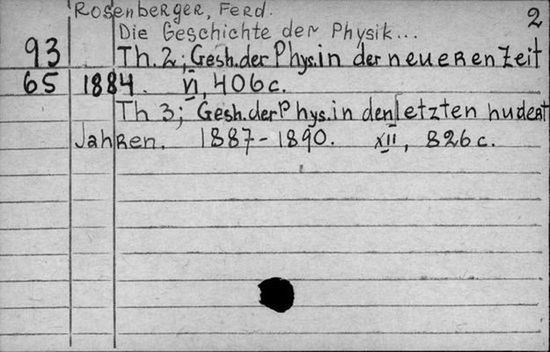 Rosenberger, Ferd.
2
Die Geschichte der Physik...
93 Th. 2; Gesh. der Phys. in der neueren Zeit
65 1884. VI, 406 c.
Th 3; Gesh. der Phys. in den letzten hudert
Jahren. 1887-1890. XII, 826 c.